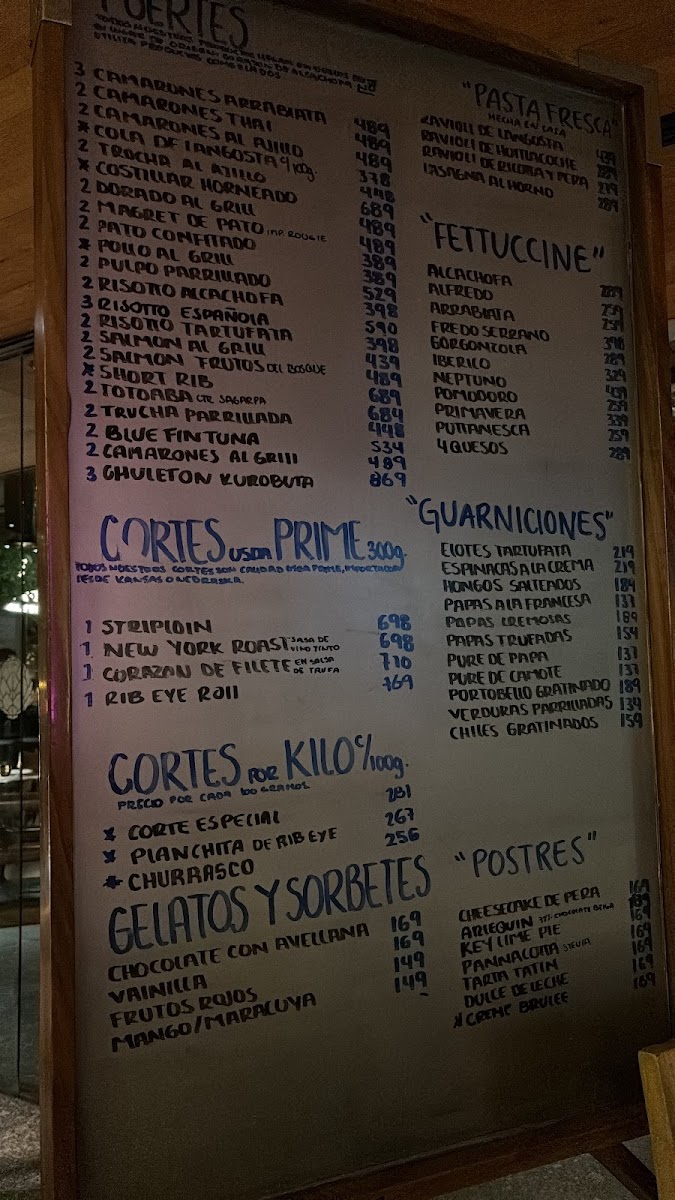 FUERTES
3 CAMARONES ARRABIATA 489
2 CAMARONES THAI 489
2 CAMARONES AL AJILLO 489
* COLA DE LANGOSTA c/100g. 378
2 TRUCHA AL AJILLO 448
* COSTILLAR HORNEADO 689
2 DORADO AL GRILL 489
2 MAGRET DE PATO IMP. ROUGIE 489
2 PATO CONFITADO 389
* POLLO AL GRILL 389
2 PULPO PARRILLADO 529
2 RISOTTO ALCACHOFA 398
3 RISOTTO ESPAÑOLA 590
2 RISOTTO TARTUFATA 398
2 SALMON AL GRILL 439
2 SALMON FRUTOS DEL BOSQUE 489
* SHORT RIB 689
2 TOTOABA CTR SAGARPA 684
2 TRUCHA PARRILLADA 448
2 BLUE FIN TUNA 534
2 CAMARONES AL GRILL 489
3 CHULETON KUROBUTA 869
CORTES USDA PRIME 300g.
TODOS NUESTROS CORTES SON CALIDAD USDA PRIME, IMPORTADA
DESDE KANSAS O NEBRASKA.
1 STRIPLOIN 698
1 NEW YORK ROAST SALSA DE VINO TINTO 698
1 CORAZAN DE FILETE EN SALSA DE TRUFA 710
1 RIB EYE ROLL 769
CORTES POR KILO c/100g.
PRECIO POR CADA 100 GRAMOS
* CORTE ESPECIAL 281
* PLANCHITA DE RIB EYE 267
* CHURRASCO 256
GELATOS Y SORBETES
CHOCOLATE CON AVELLANA 169
VAINILLA 169
FRUTOS ROJOS 149
MANGO/MARACUYA 149
"PASTA FRESCA"
HECHA EN CASA
RAVIOLI DE LANGOSTA 439
RAVIOLI DE HUITLACOCHE 289
RAVIOLI DE RICOTTA Y PERA 279
LASAGNA AL HORNO 289
"FETTUCCINE"
ALCACHOFA 289
ALFREDO 259
ARRABIATA 259
FREDO SERRANO 398
GORGONZOLA 289
IBERICO 329
NEPTUNO 439
POMODORO 259
PRIMAVERA 339
PUTTANESCA 259
4 QUESOS 289
"GUARNICIONES"
ELOTES TARTUFATA 219
ESPINACAS A LA CREMA 219
HONGOS SALTEADOS 184
PAPAS A LA FRANCESA 137
PAPAS CREMOSAS 189
PAPAS TRUFADAS 154
PURE DE PAPA 137
PURE DE CAMOTE 137
PORTOBELLO GRATINADO 189
VERDURAS PARRILLADAS 134
CHILES GRATINADOS 159
"POSTRES"
CHEESECAKE DE PERA 169
ARLEQUIN CHOCOLATE BELGA 189
KEY LIME PIE 169
PANNACOTTA STEVIA 169
TARTA TATIN 169
DULCE DE LECHE 169
* CREME BRULEE 169